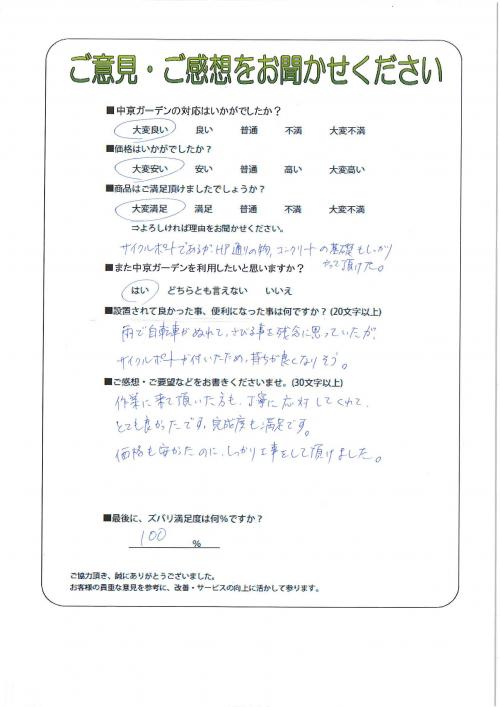 ご意見・ご感想をお聞かせください
■中京ガーデンの対応はいかがでしたか？
大変良い 良い 普通 不満 大変不満
■価格はいかがでしたか？
大変安い 安い 普通 高い 大変高い
■商品はご満足頂けましたでしょうか？
大変満足 満足 普通 不満 大変不満
⇒よろしければ理由をお聞かせください。
サイクルポートであるが、HP通りの物、コンクリートの基礎もしっかり
やって頂けた。
■また中京ガーデンを利用したいと思いますか？
はい どちらとも言えない いいえ
■設置されて良かった事、便利になった事は何ですか？(20文字以上)
雨で自転車がぬれて、さびる事を残念に思っていたが、
サイクルポートが付いたため、持ちが良くなりそう。
■ご感想・ご要望などをお書きくださいませ。(30文字以上)
作業に来て頂いた方も、丁寧に応対してくれて、
とても良かったです。完成度も満足です。
価格も安かったのに、しっかり工事をして頂けました。
■最後に、ズバリ満足度は何％ですか？
100 ％
ご協力頂き、誠にありがとうございました。
お客様の貴重な意見を参考に、改善・サービスの向上に活かして参ります。